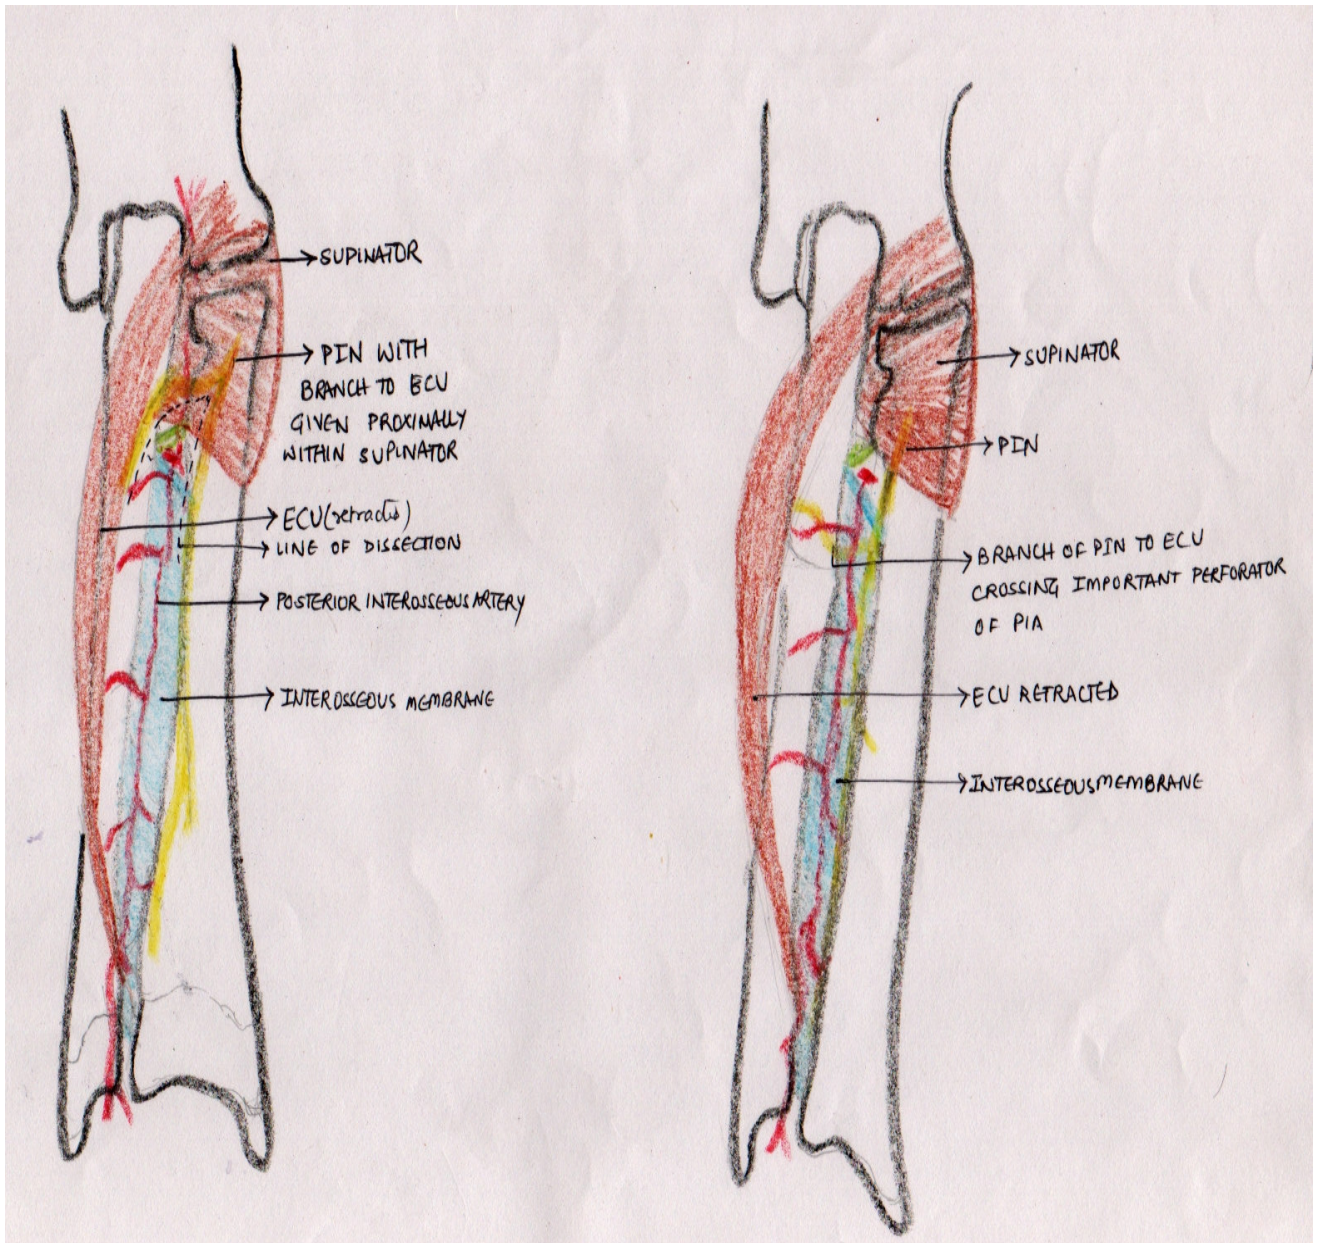 SUPINATOR
PIN WITH
BRANCH TO ECU
GIVEN PROXIMALLY
WITHIN SUPINATOR
ECU (retracts)
LINE OF DISSECTION
POSTERIOR INTEROSSEOUS ARTERY
INTEROSSEOUS MEMBRANE
SUPINATOR
PIN
BRANCH OF PIN TO ECU
CROSSING IMPORTANT PERFORATOR
OF PIA
ECU RETRACTED
INTEROSSEOUS MEMBRANE